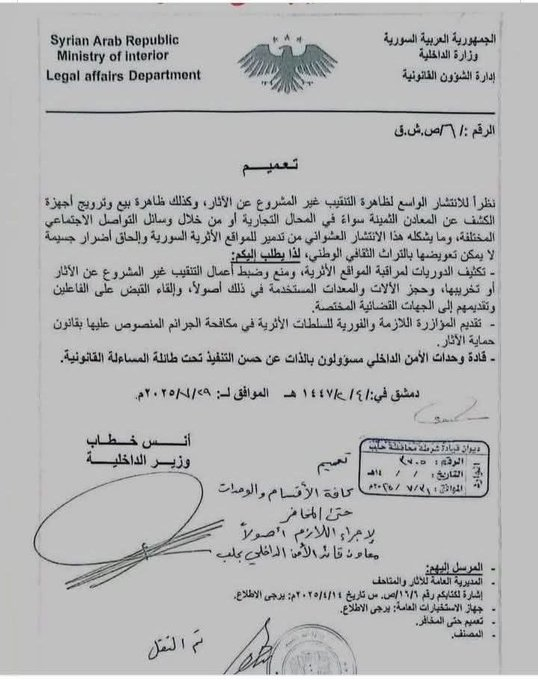 الجمهورية العربية السورية
وزارة الداخلية
إدارة الشؤون القانونية
Syrian Arab Republic
Ministry of interior
Legal affairs Department
الرقم :/ ٦/ص.ش.ق
تعميم
نظراً للانتشار الواسع لظاهرة التنقيب غير المشروع عن الآثار، وكذلك ظاهرة بيع وترويج أجهزة
الكشف عن المعادن الثمينة سواءً في المحال التجارية أو من خلال وسائل التواصل الاجتماعي
المختلفة، وما يشكله هذا الانتشار العشوائي من تدمير للمواقع الأثرية السورية وإلحاق أضرار جسيمة
لا يمكن تعويضها بالتراث الثقافي الوطني، لذا يطلب إليكم:
- تكثيف الدوريات لمراقبة المواقع الأثرية، ومنع وضبط أعمال التنقيب غير المشروع عن الآثار
أو تخريبها، وحجز الآلات والمعدات المستخدمة في ذلك أصولاً، وإلقاء القبض على الفاعلين
وتقديمهم إلى الجهات القضائية المختصة.
- تقديم المؤازرة اللازمة والفورية للسلطات الأثرية في مكافحة الجرائم المنصوص عليها بقانون
حماية الآثار.
- قادة وحدات الأمن الداخلي مسؤولون بالذات عن حسن التنفيذ تحت طائلة المساءلة القانونية.
دمشق في: ٤/ ٢/ ١٤٤٧ هـ الموافق لـ: ٢٩/ ٧/ ٢٠٢٥م.
أنس خطاب
وزير الداخلية
ديوان قيادة شرطة محافظة حلب
الوارد
الرقم: ٣٧٠٥
التاريخ: / / ١٤هـ
الموافق: ٣١ / ٧ / ٢٠٢٥م
تعميم
كافة الأقسام والوحدات
حتى المخافر
لإجراء اللازم أصولاً
معاون قائد الأمن الداخلي بحلب
المرسل إليهم:
- المديرية العامة للآثار والمتاحف
إشارة لكتابكم رقم ١٦/٦/ص. س تاريخ ٢٠٢٥/٤/١٤م: يرجى الاطلاع.
- جهاز الاستخبارات العامة: يرجى الاطلاع.
- تعميم حتى المخافر.
- المصنف.
تم النقل